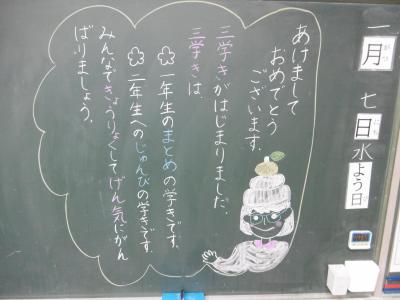 一月七日水よう日
がつ
にち
び
あけまして
おめでとう
ございます。
三学きがはじまりました。
三学きは、
一年生のまとめの学きです。
二年生へのじゅんびの学きです。
みんなできょうりょくしてげん気にがん
ばりましょう。